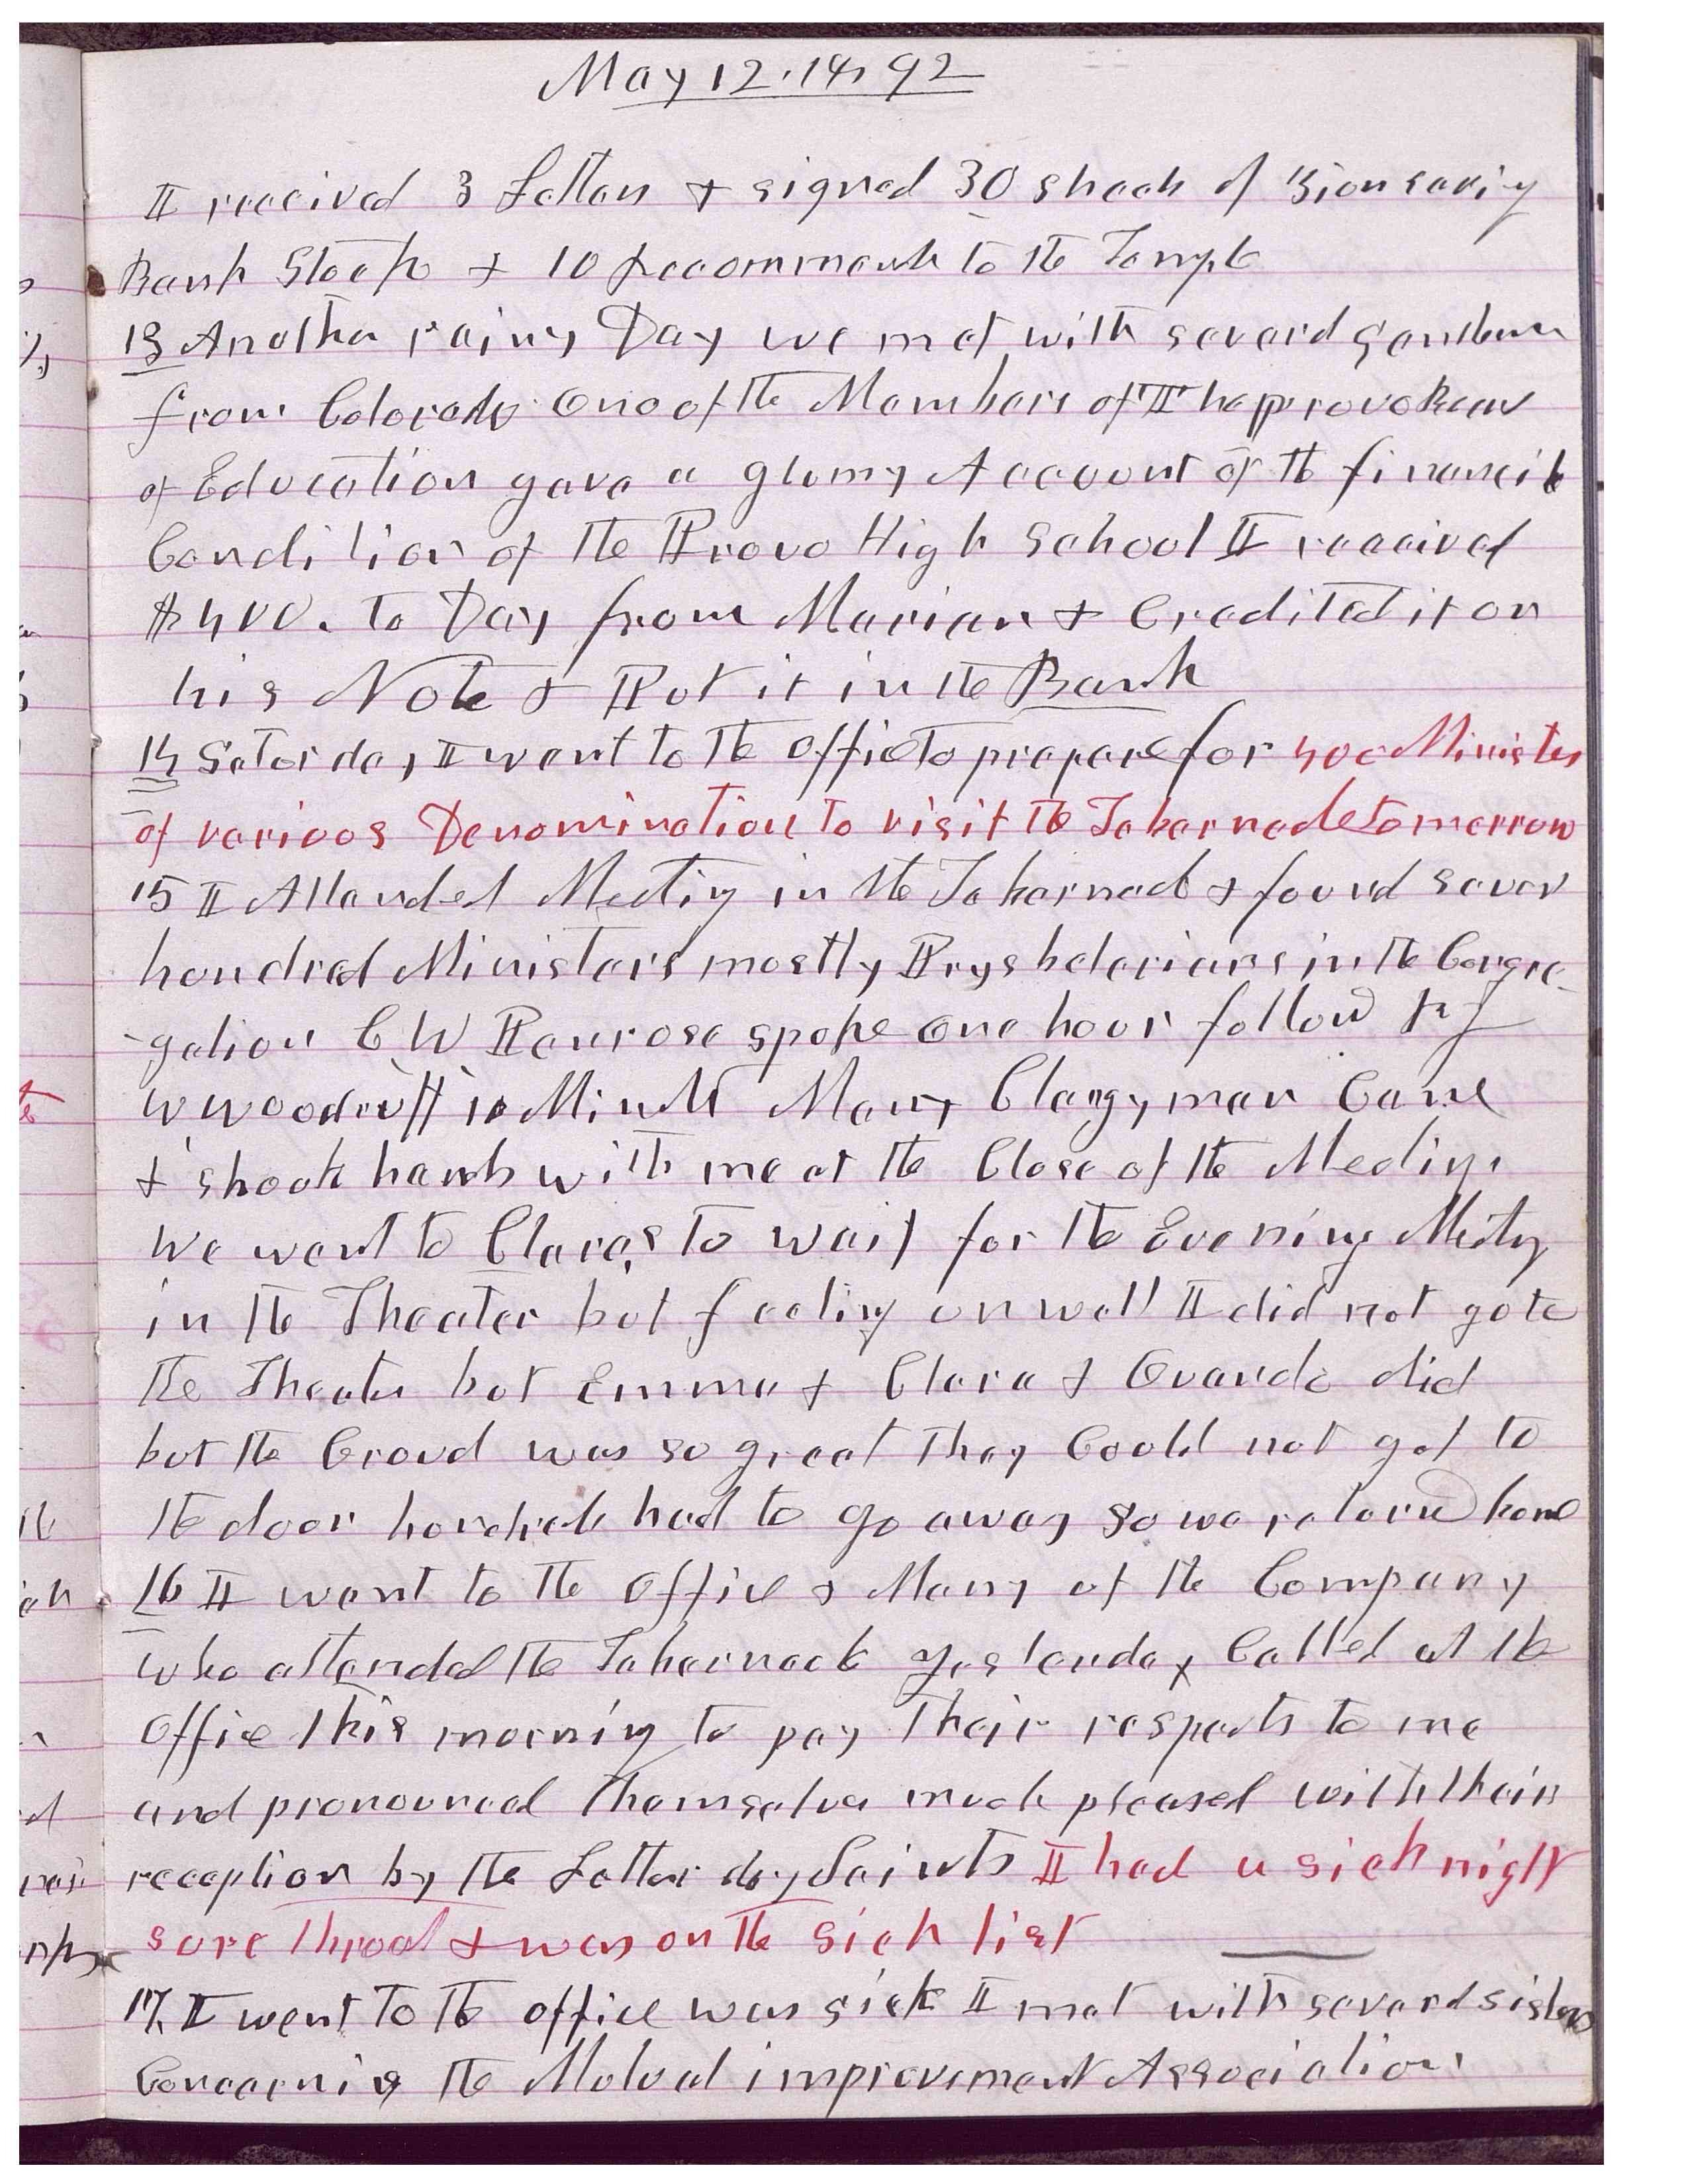 May 12. 14, 92
I received 3 Letters & signed 30 sheets of Zion saving
Bank Stock & 10 Recommends to the Temple
13 Another rainy Day we met with several gentlemen
from Colorado One of the Members of The provo Bear
of Education gave a glomy Account of the financile
Condition of the Provo High School I received
$400. to Day from Marian & Credited it on
his Note & Put it in the Bank
14 Saturday I went to the office to prepare for 400 Ministers
of various Denomination to visit the Tabernacle tomorrow
15 I Attended Meeting in the Tabernacle & found sever
hundred Ministers mostly Prysbeterians in the Congre-
-gation C W Penrose spoke one hour followd by
W Woodruff 10 Minuts Many Clergyman Came
& shook hands with me at the Close of the Meeting.
We went to Claras to wait for the Evening Meeting
in the Theater but feeling unwell I did not go to
the Theater but Emma & Clara & Ovando did
but the Croud was so great They Could not get to
the door hundreds had to go away so we returnd home
16 I went to the Office & Many of the Company
who attended the Tabernacle yesterday Called at the
Office this morning to pay their respects to me
and pronounced themselves much pleased with their
reception by the Latter day Saints I had a sick night
sore throat & was on the sick list
17. I went to the office was sick I met with several sisters
Concerning the Mutual improvement Association.